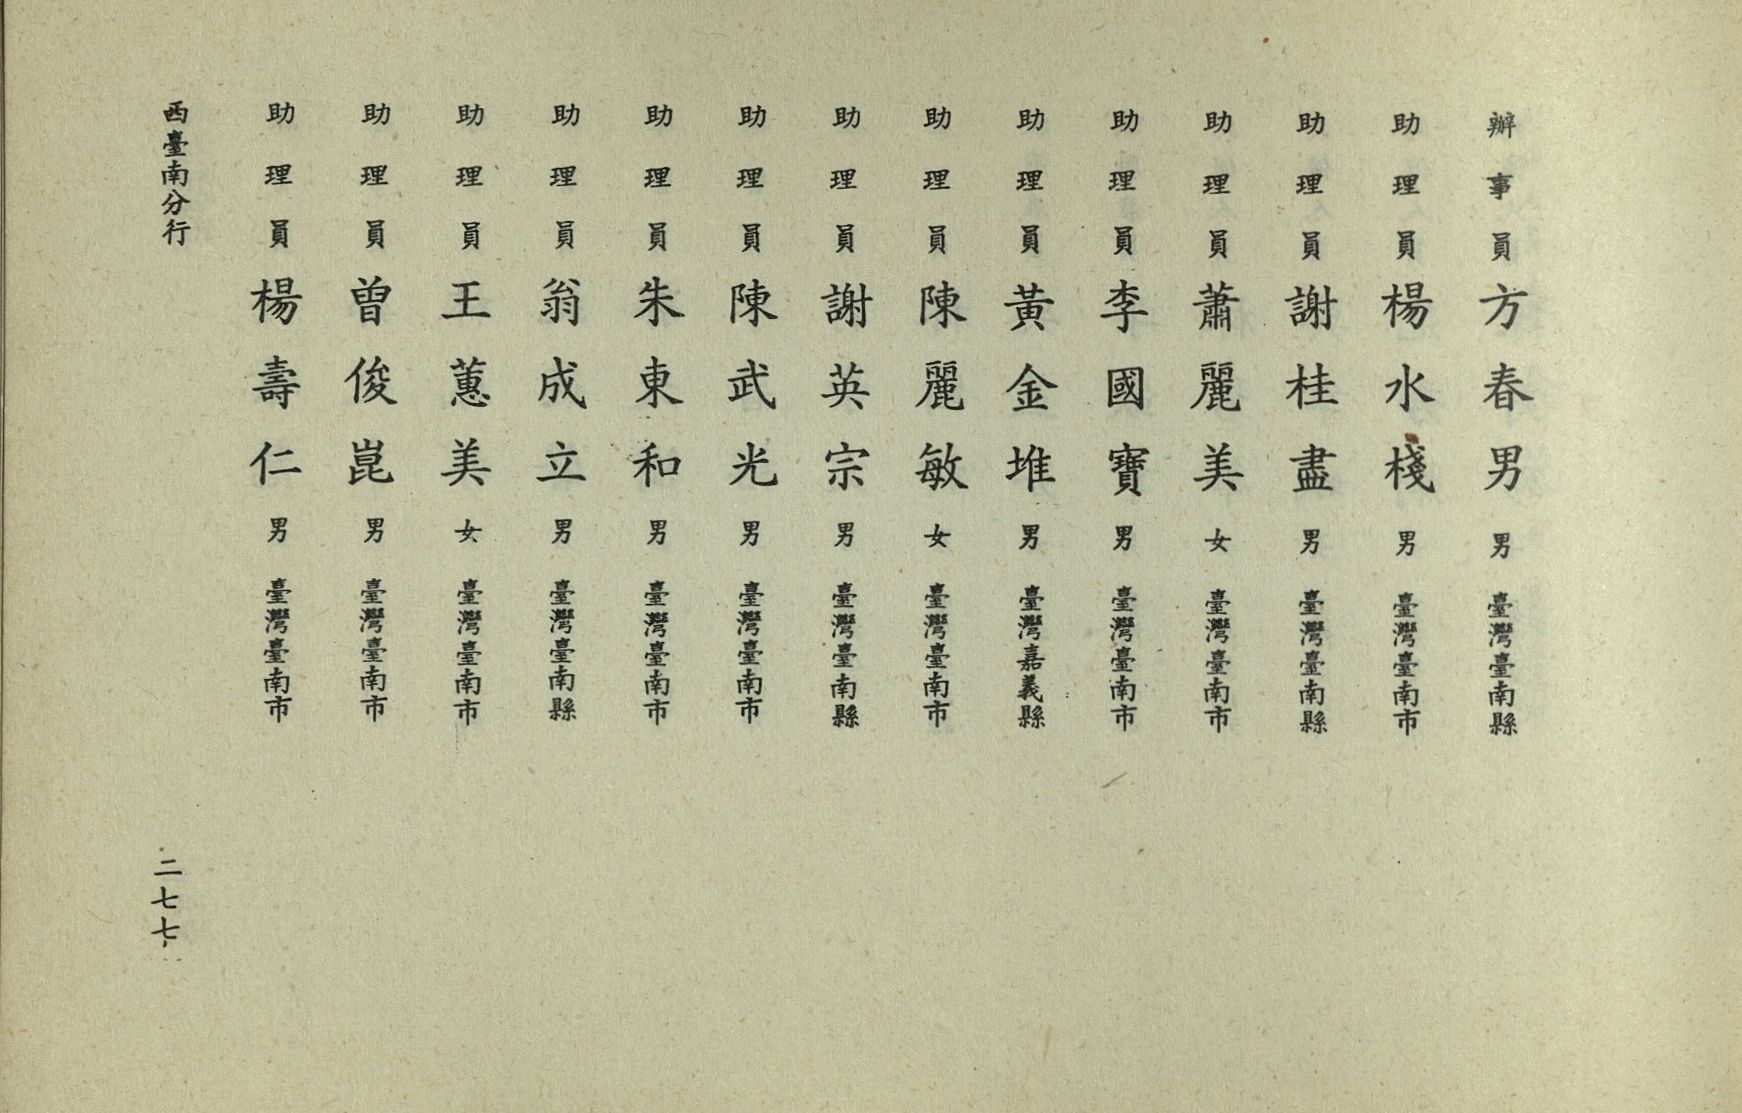 辦事員方春男男臺灣臺南縣
助理員楊水棧男臺灣臺南市
助理員謝桂盡男臺灣臺南縣
助理員蕭麗美女臺灣臺南市
助理員李國寶男臺灣臺南市
助理員黃金堆男臺灣嘉義縣
助理員陳麗敏女臺灣臺南市
助理員謝英宗男臺灣臺南縣
助理員陳武光男臺灣臺南市
助理員朱東和男臺灣臺南市
助理員翁成立男臺灣臺南縣
助理員王蕙美女臺灣臺南市
助理員曾俊崑男臺灣臺南市
助理員楊壽仁男臺灣臺南市
西臺南分行
二七七